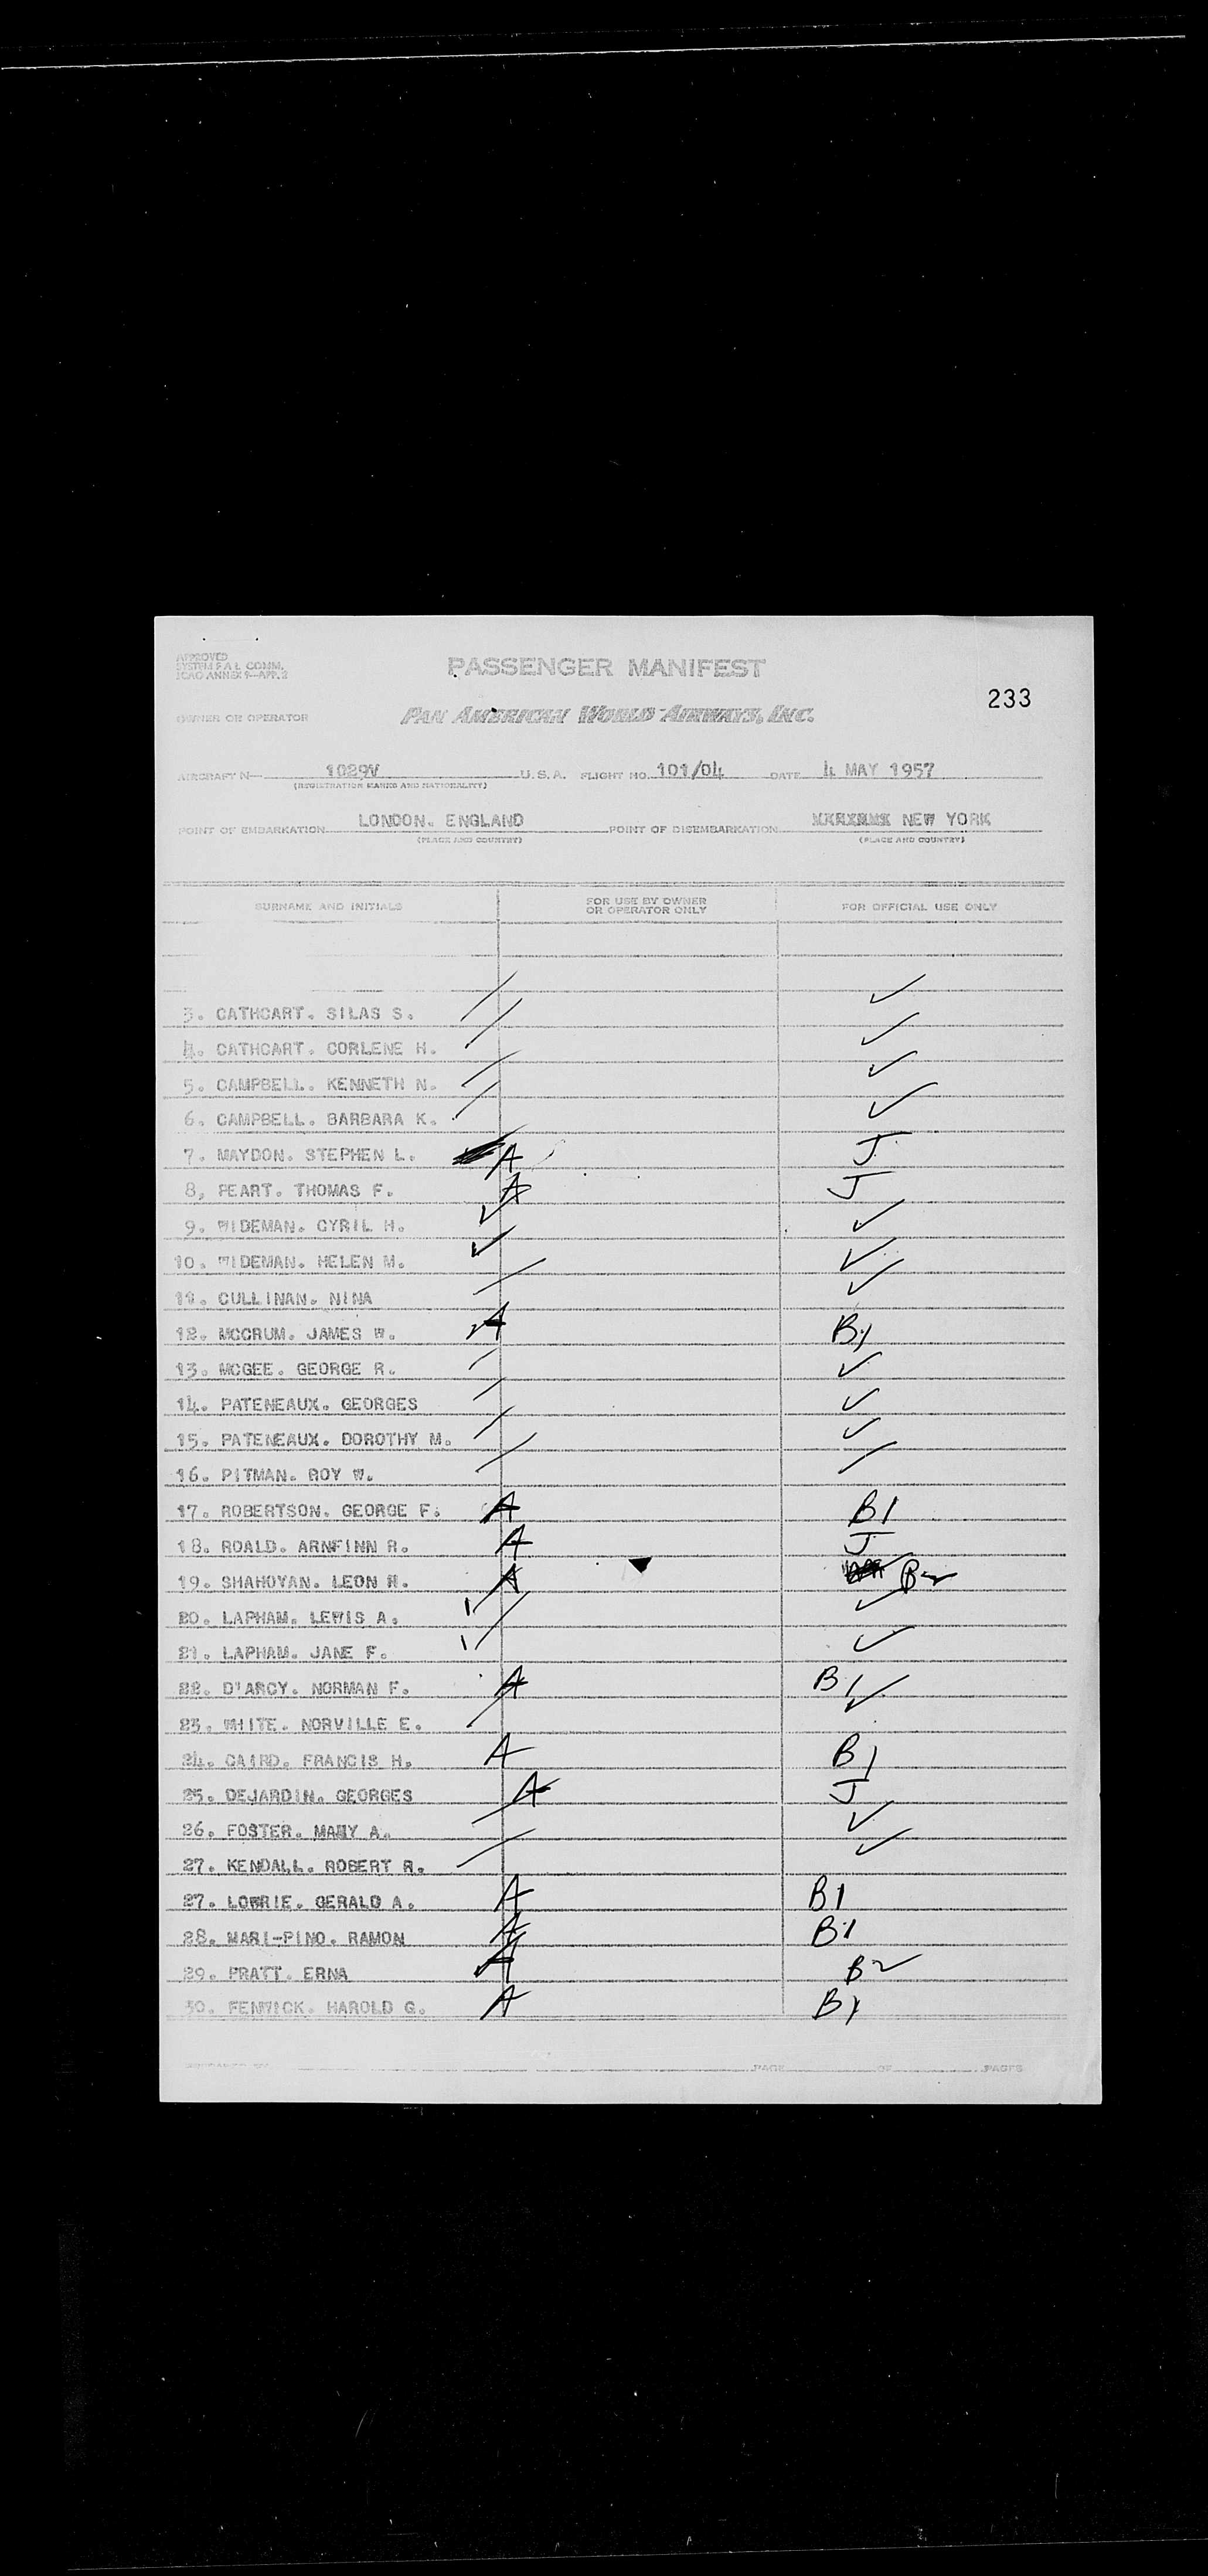 APPROVED
SYSTEM F A L COMM.
ICAO ANNEX 9—APP. 2
PASSENGER MANIFEST
233
OWNER OR OPERATOR PAN AMERICAN WORLD AIRWAYS, INC.
AIRCRAFT N— 1029V U. S. A. FLIGHT NO. 101/04 DATE 4 MAY 1957
(REGISTRATION MARKS AND NATIONALITY)
POINT OF EMBARKATION LONDON. ENGLAND POINT OF DISEMBARKATION NEW YORK
(PLACE AND COUNTRY) (PLACE AND COUNTRY)
SURNAME AND INITIALS FOR USE BY OWNER OR OPERATOR ONLY FOR OFFICIAL USE ONLY
3. CATHCART. SILAS S. / ✓
4. CATHCART. CORLENE H. / ✓
5. CAMPBELL. KENNETH N. / ✓
6. CAMPBELL. BARBARA K. / ✓
7. MAYDON. STEPHEN L. A J
8, PEART. THOMAS F. A J
9. WIDEMAN. CYRIL H. ✓ ✓
10. WIDEMAN. HELEN M. ✓ ✓
11. CULLINAN. NINA / ✓
12. MCCRUM. JAMES W. A B1
13. MCGEE. GEORGE R. / ✓
14. PATENEAUX. GEORGES / ✓
15. PATENEAUX. DOROTHY M. / ✓
16. PITMAN. ROY W. / /
17. ROBERTSON. GEORGE F. A B1
18. ROALD. ARNFINN R. A J
19. SHAHOYAN. LEON H. A B2
20. LAPHAM. LEWIS A. / ✓
21. LAPHAM. JANE F. / ✓
22. D'ARCY. NORMAN F. A B1
23. WHITE. NORVILLE E. / ✓
24. CAIRD. FRANCIS H. A B1
25. DEJARDIN. GEORGES A J
26. FOSTER. MARY A. / ✓
27. KENDALL. ROBERT R. / ✓
27. LOWRIE. GERALD A. A B1
28. MARI-PINO. RAMON A B1
29. PRATT. ERNA A B2
30. FENWICK. HAROLD G. A B1
PREPARED BY PAGE OF PAGES